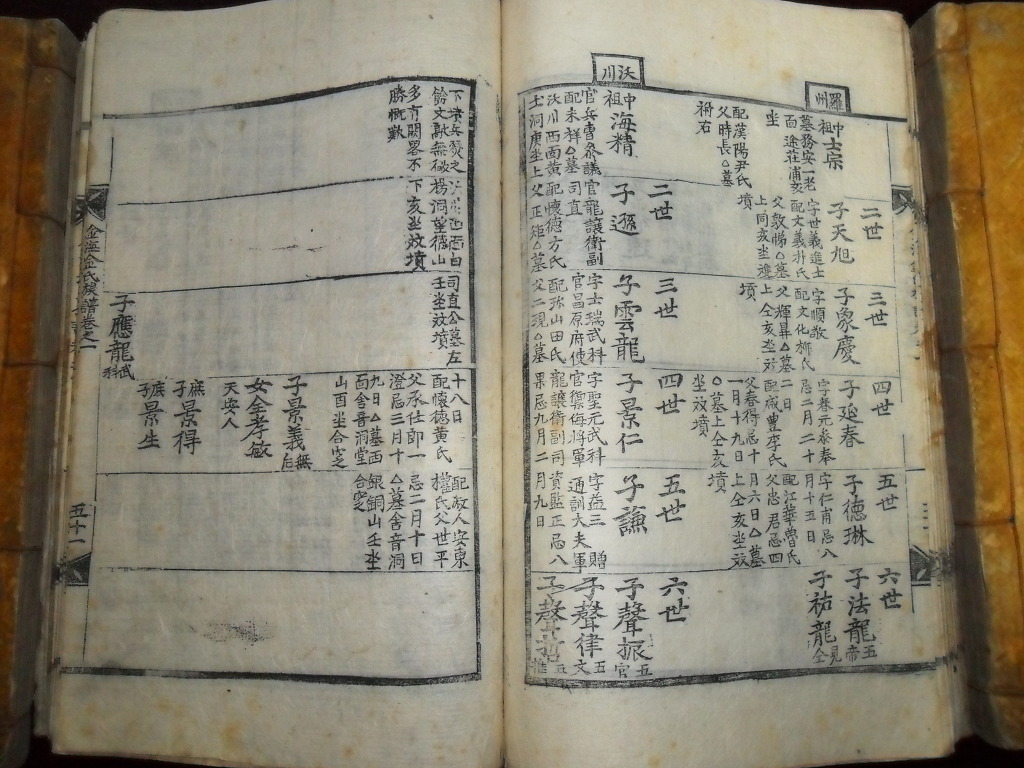 羅州
中祖士宗
墓務安一老
面途莊浦亥
坐
配漢陽尹氏
父時長△墓
祔右
二世
子天旭
字世義進士
配文義朴氏
父敦悌△墓
上同亥坐
墳
三世
子象慶
字順敬
配文化柳氏
父輝昇△墓
上仝亥坐双
墳
四世
子延春
字春元泰奉
忌二月二十
二日
配咸豊李氏
父春得忌十
一月十九日
△墓上仝亥
坐双墳
五世
子德琳
字仁甫忌八
月十五日
配江華魯氏
父忠君忌四
月六日△墓
上仝亥坐双
墳
六世
子法龍 五帝
子祐龍 見仝
沃川
中祖海精
官兵曹叅議
配未祥△墓
沃川西面黃
士洞庚坐上
二世
子遜
官龍驤衛副
司直
配懷德方氏
父正矩△墓
三世
子雲龍
字士瑞武科
官昌原府使
配珎山田氏
父二現△墓
四世
子景仁
字聖元武科
官禦侮將軍
龍驤衛副司
果忌九月二
五世
子謙
字益三贈
通訓大夫軍
資監正忌八
月九日
六世
子聲振 五官
子聲律 五文
子聲
下墳兵燹之
餘文獻無徵
多有闕畧不
勝慨歎
沃川西面白
楊洞望德山
下亥坐双墳
司直公墓左
壬坐双墳
子應龍 武科
十八日
配懷德黃氏
父承仕郎一
澄忌三月十
九日△墓西
面舍音洞堂
山酉坐合窆
子景義 無后
女全考敏
天安人
庶子景得
庶子景生
配敵人安東
權氏父世平
忌二月十日
△墓舍音洞
銀銅山壬坐
合窆
金海金氏族譜卷之一
五十一